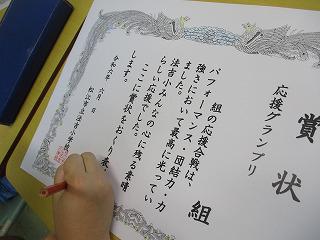 賞状
応援グランプリ
組
パフォーマンス・団結力・力
強さにおいて最高に光ってい
ました。
組の応援合戦は、
法吉小みんなの心に残る素晴
らしい応援でした。
ここに賞状をおくり
します。
令和六年 六月 日
松江市立法吉小学校